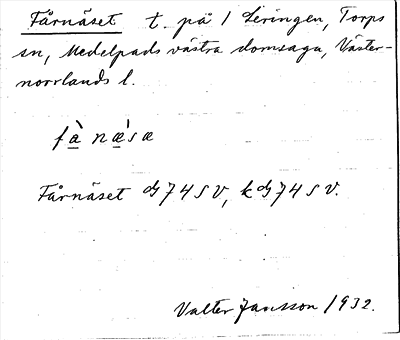 Fårnäset t. på 1 Leringen, Torps
sn, Medelpads västra domsaga, Väster-
norrlands l.
fà næ'sæ
Fårnäset dJ 74 S V, k dJ 74 S V.
Valter Jansson 1932.